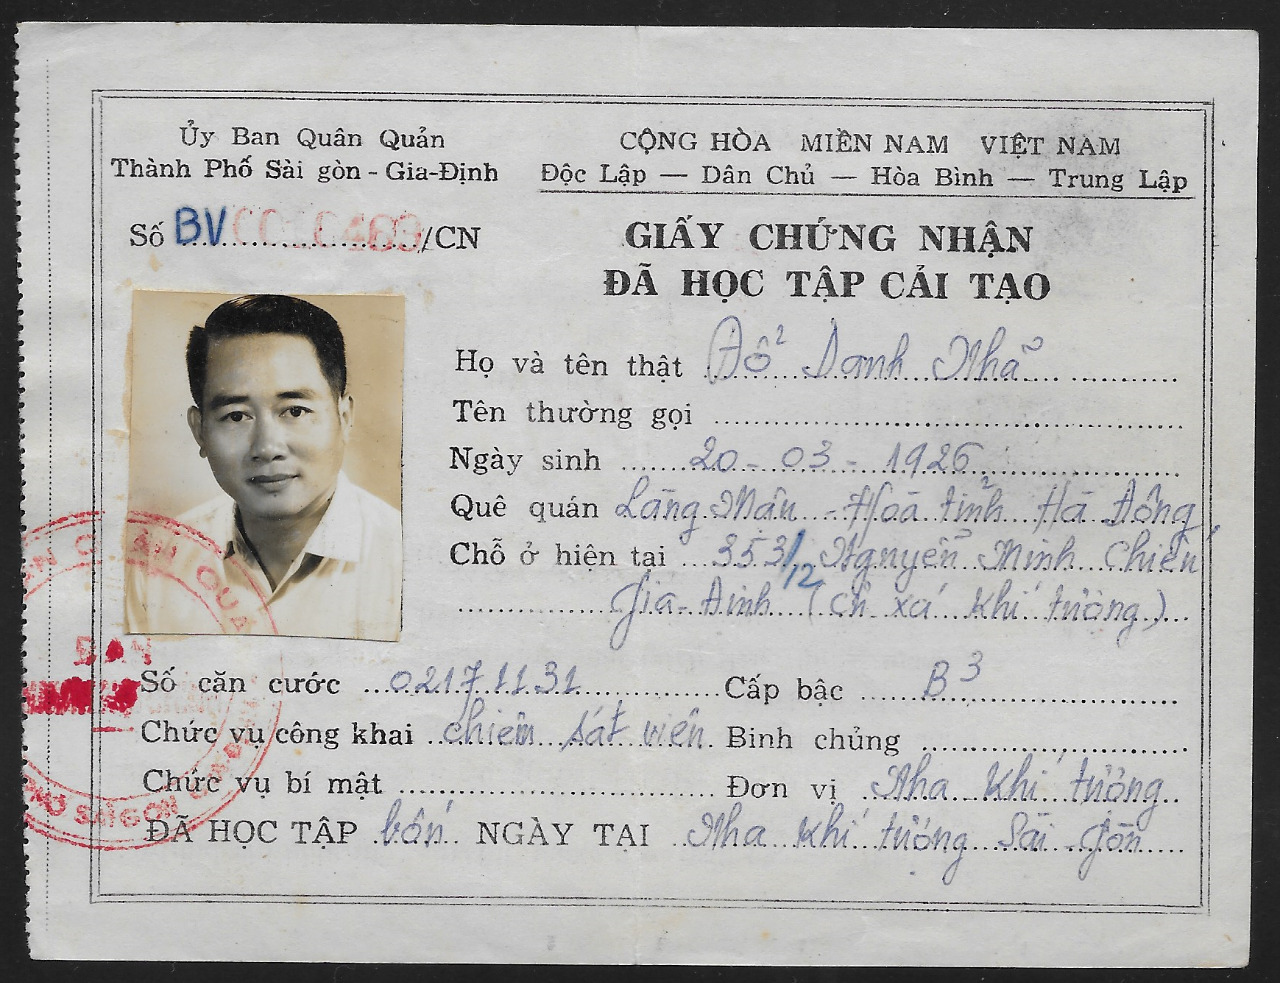 Ủy Ban Quân Quản
Thành Phố Sài gòn - Gia-Định
CỘNG HÒA MIỀN NAM VIỆT NAM
Độc Lập — Dân Chủ — Hòa Bình — Trung Lập
Số BV /CN
GIẤY CHỨNG NHẬN
ĐÃ HỌC TẬP CẢI TẠO
Họ và tên thật Đổ Danh Nhã
Tên thường gọi
Ngày sinh 20 - 03 - 1926
Quê quán Làng Mậu - Hoà tỉnh Hà Đông
Chỗ ở hiện tại 353/12 Nguyễn Minh Chiếu
Gia-Định (Ch xá khí tượng)
Số căn cước 02171131 Cấp bậc B3
Chức vụ công khai chiêm sát viên Binh chủng
Chức vụ bí mật Đơn vị Nha Khí tượng
ĐÃ HỌC TẬP bốn NGÀY TẠI Nha Khí tượng Sài Gòn
BAN
SAIGON